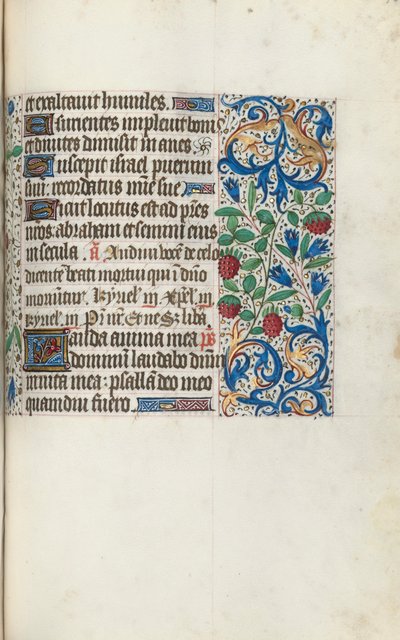 et exaltavit humiles.
Esurientes implevit bonis
et divites dimisit inanes
Suscepit israel puerum
suum recordatus mie sue
Sicut locutus est ad pres
nros abraham et semini eius
in secula a Audivi vocē de celo
dicente beati mortui qui ī dño
moriūtur. kyriel' in Xpel' in
kyriel' in Pr̄ nr̄ Et ne S; liba
Lauda anima mea ps
dominum laudabo dnm
in vita mea: psallā deo meo
quamdiu fuero